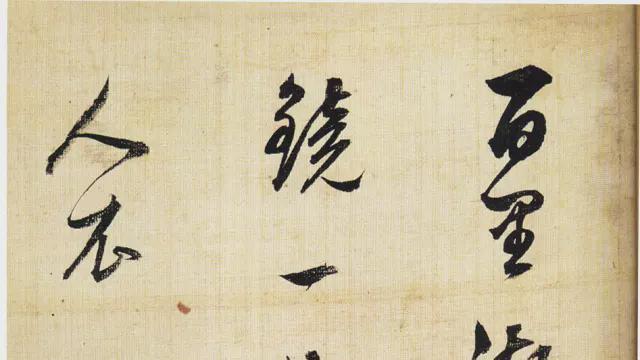 百里
鏡一
人衣